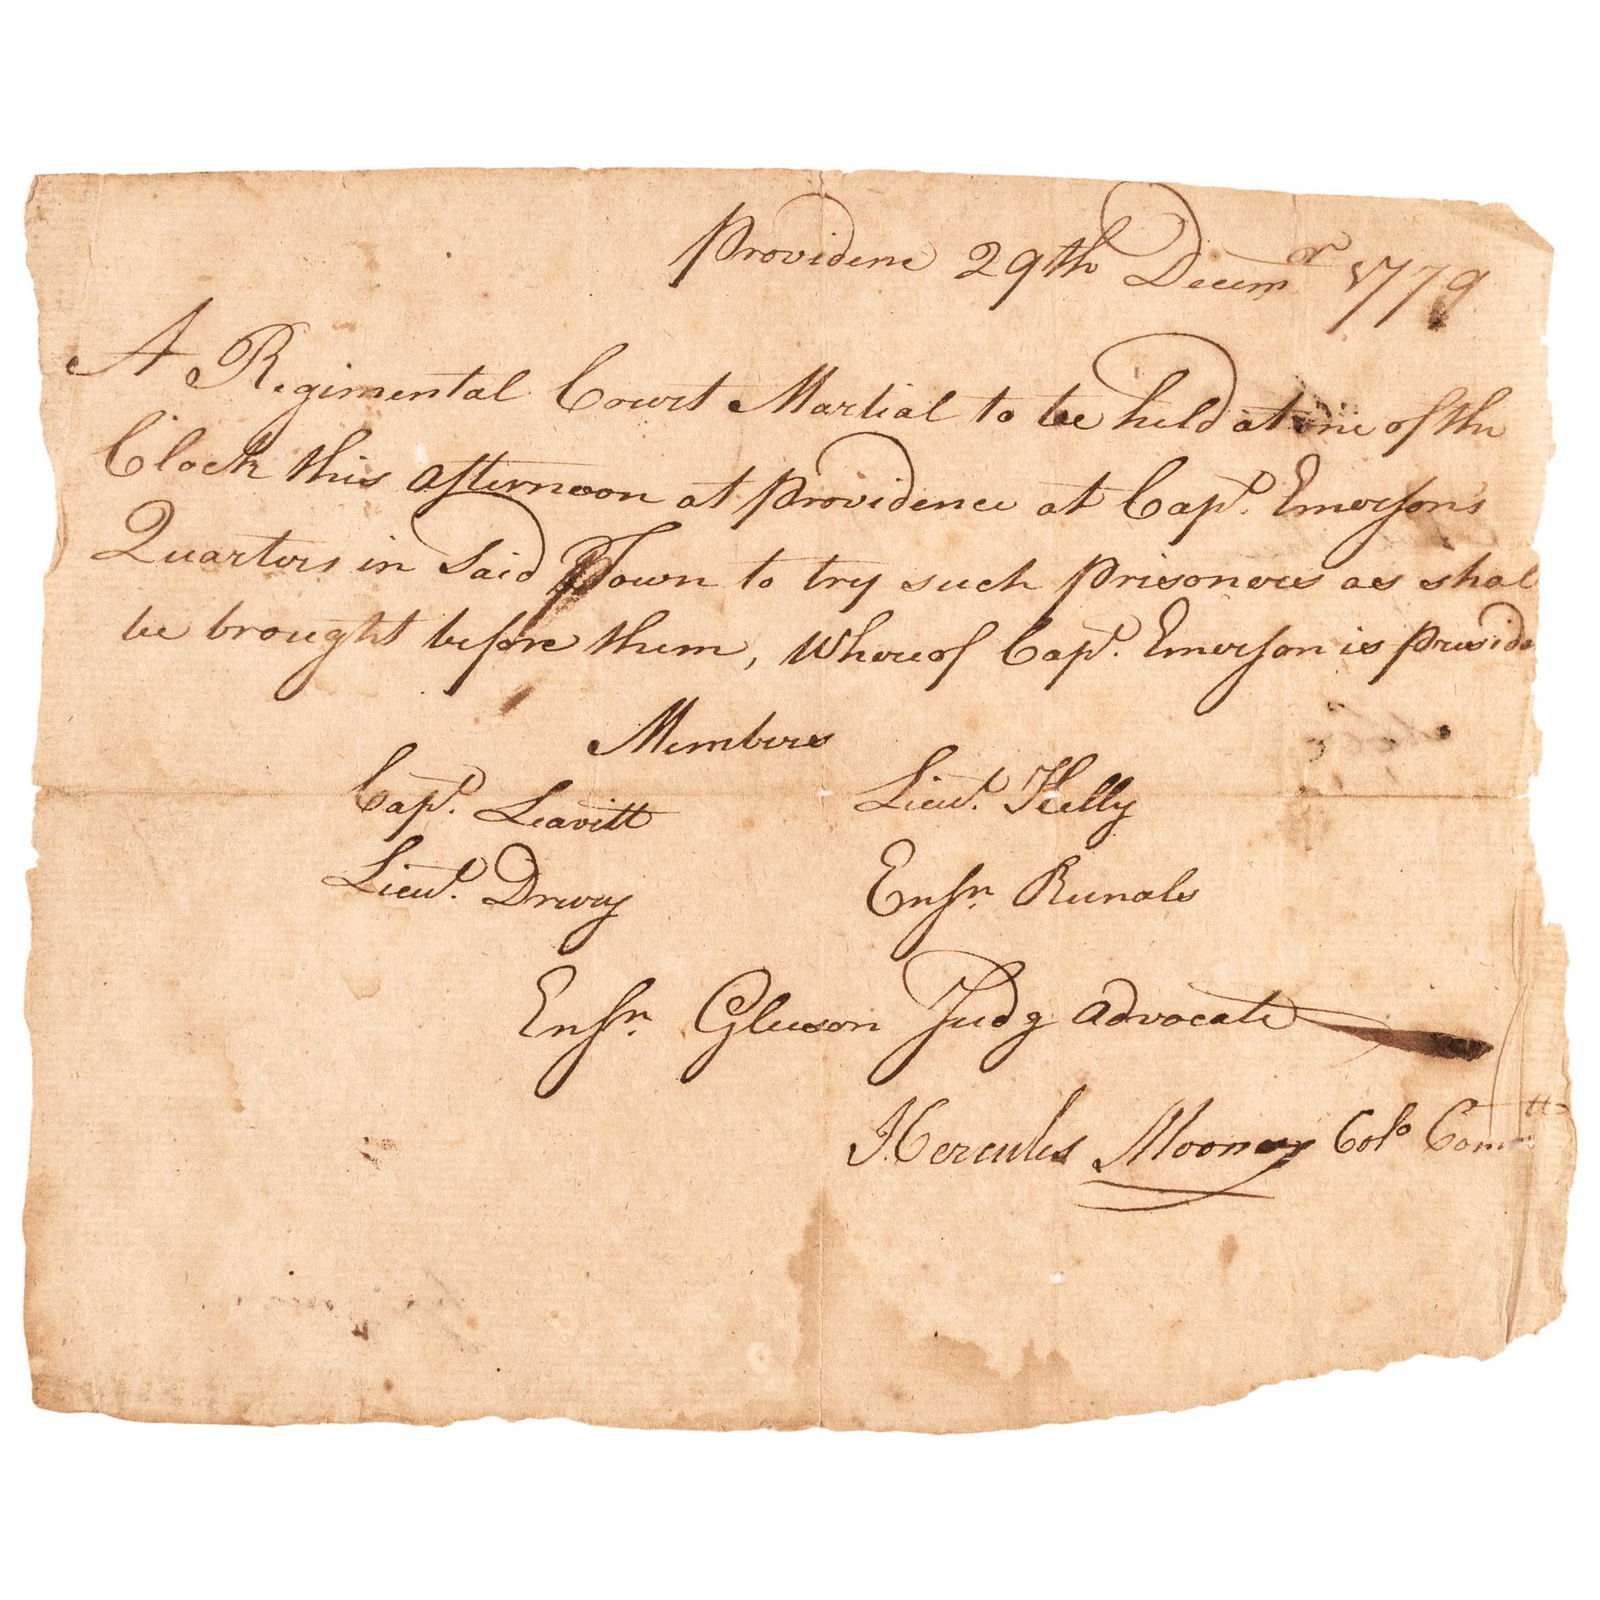 Providence 29th Decemr 1779
A Regimental Court Martial to be held at one of the
Clock this afternoon at Providence at Capt. Emerson's
Quarters in Said Town to try such prisoners as shal
be brought before them, Whereof Capt. Emerson is Preside
Members
Capt. Leavitt Lieut. Kelly
Lieut. Drury Ensn. Runals
Ensn. Gleason Judg advocate
Hercules Mooney Colo Comtt